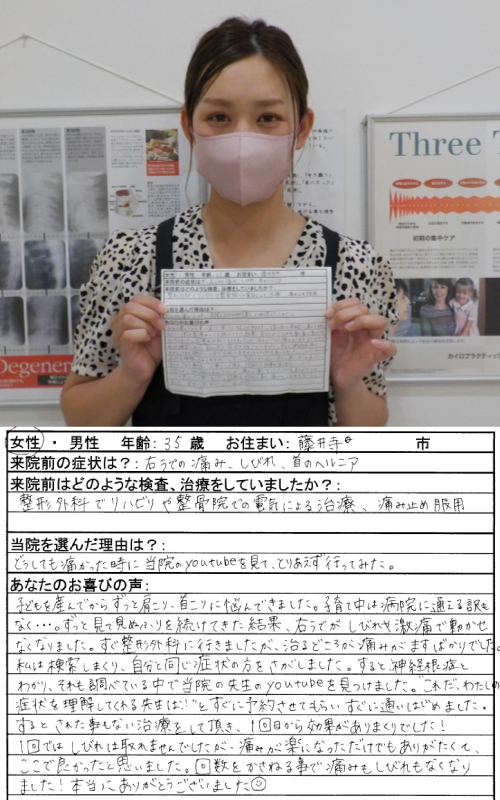 Three T
初期の集中ケア
Degener
カイロプラクティック
女性 ・ 男性 年齢: 35 歳 お住まい: 藤井寺 市
来院前の症状は?: 右うでの痛み、しびれ、首のヘルニア
来院前はどのような検査、治療をしていましたか?:
整形外科でリハビリや整骨院での電気による治療、痛み止め服用
当院を選んだ理由は?:
どうしても痛かった時に当院のyoutubeを見て、とりあえず行ってみた。
あなたのお喜びの声:
子どもを産んでからずっと肩こり、首こりに悩んできました。子育て中は病院に通える訳も
なく…。ずっと見て見ぬふりを続けてきた結果、右うでが しびれや激痛で動かせ
なくなりました。すぐ整形外科に行きましたが、治るどころか痛みがますばかりでした。
私は検索しまくり、自分と同じ症状の方をさがしました。すると神経根症と
わかり、それも調べている中で当院の先生のyoutubeを見つけました。"これだ、わたしの
症状を理解してくれる先生は!!"とすぐに予約させてもらい すぐに通いはじめました。
すると された事もない治療をして頂き、1回目から効果がありまくりでした!
1回では しびれは取れませんでしたが、痛みが楽になっただけでもありがたくて、
ここで良かったと思いました。回数をかさねる事で痛みもしびれもなくなり
ました!本当にありがとうございました